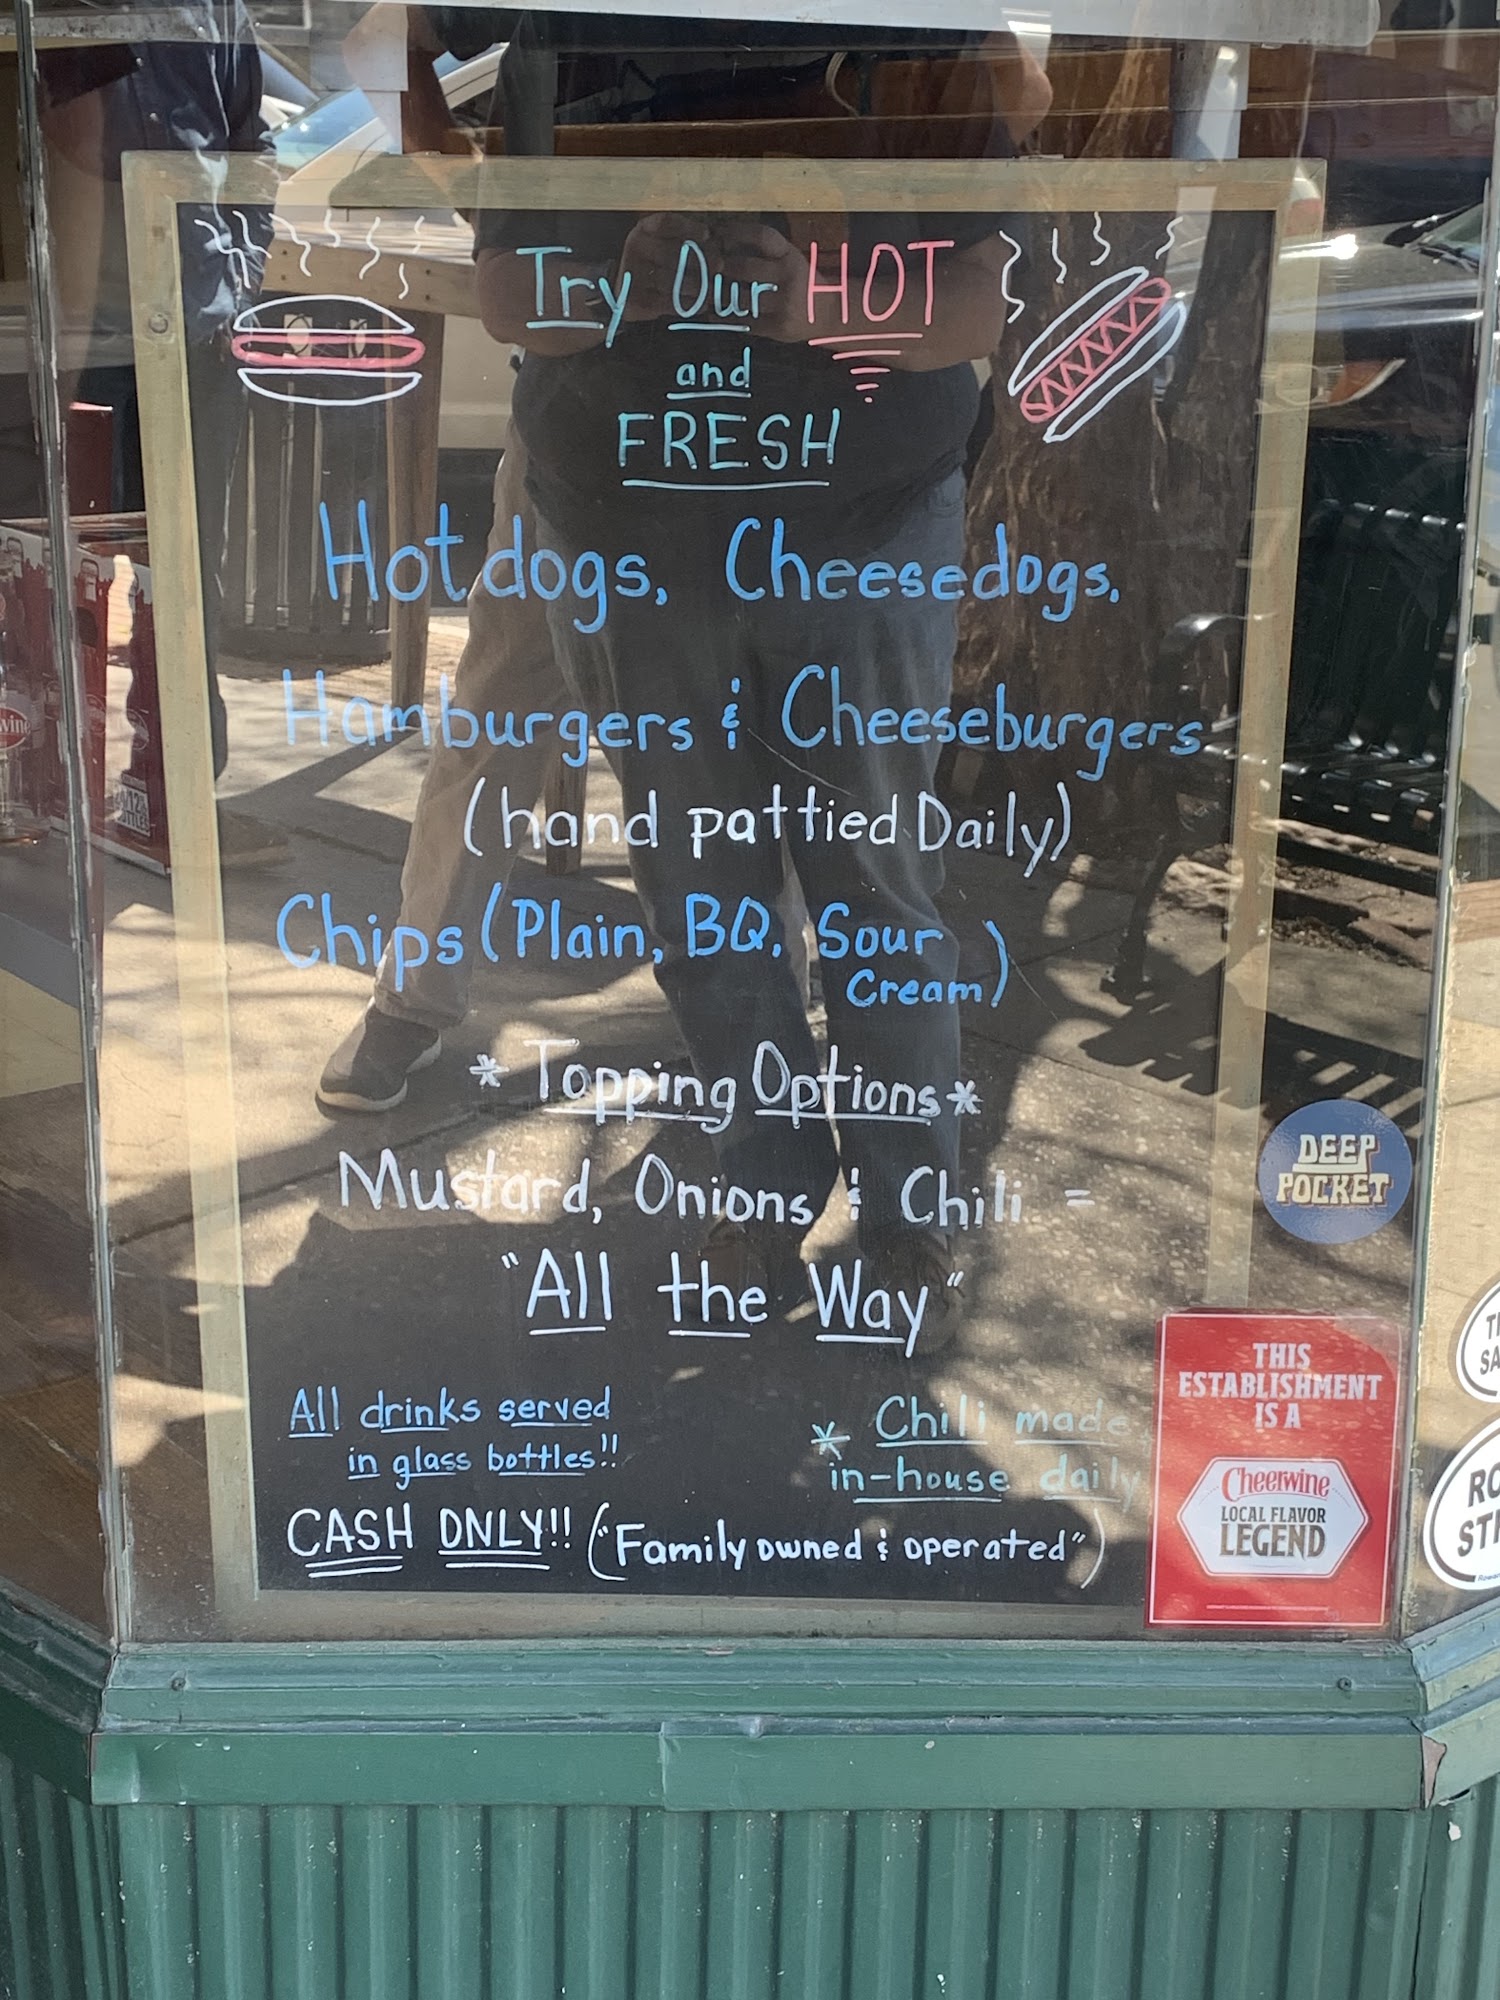 Try Our HOT
and
FRESH
Hotdogs, Cheesedogs,
Hamburgers & Cheeseburgers
(hand pattied Daily)
Chips (Plain, BQ, Sour
Cream)
* Topping Options *
Mustard, Onions & Chili =
"All the Way"
All drinks served
in glass bottles!!
* Chili made
in-house daily
CASH ONLY!! ("Family owned & operated")
DEEP
POCKET
THIS
ESTABLISHMENT
IS A
Cheerwine
LOCAL FLAVOR
LEGEND